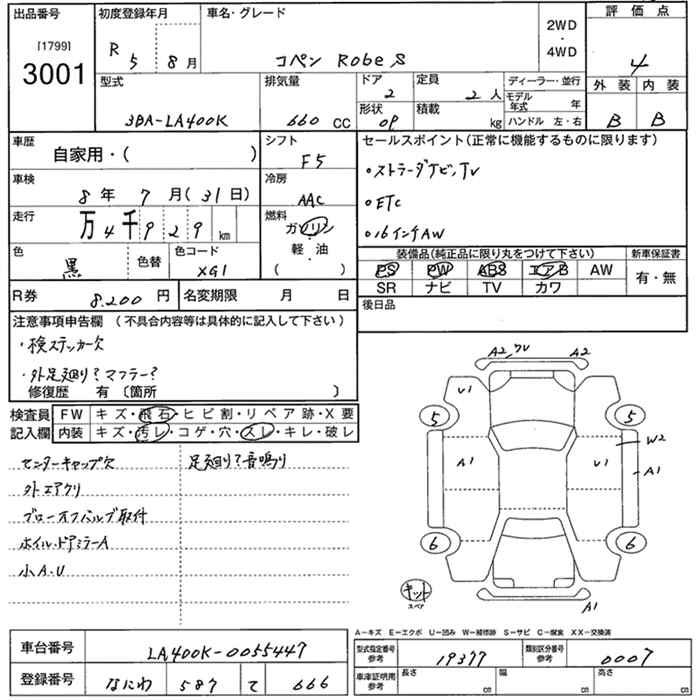 出品番号
[1799]
3001
初度登録年月
R 5 8月
車名・グレード
コペン Robe S
2WD
・
4WD
評価点
4
外装 内装
B B
型式
3BA-LA400K
排気量
660 CC
ドア
2
定員
2人
形状
OP
積載
kg
ディーラー・並行
モデル年式 年
ハンドル 左・右
車歴
自家用・( )
シフト
F5
車検
8年 7月(31日)
冷房
AAC
走行
万4千929km
燃料
ガソリン
・
軽・油
・
( )
色
黒
色替
色コード
XG1
R券
8,200円
名変期限 月 日
セールスポイント(正常に機能するものに限ります)
・ストラーダナビ、TV
・ETC
・16インチAW
装備品(純正品に限り丸をつけて下さい)
PS PW ABS エアB AW
SR ナビ TV カワ
新車保証書
有・無
後日品
注意事項申告欄 (不具合内容等は具体的に記入して下さい)
・検ステッカー欠
・外足廻り?マフラー?
修復歴 有〔箇所 〕
検査員記入欄
FW キズ・飛石・ヒビ割・リペア跡・X要
内装 キズ・汚レ・コゲ・穴・スレ・キレ・破レ
センターキャップ欠
外エアクリ
ブローオフバルブ取付
ホイル・ドアミラーA
小A.U
足廻り?音鳴り
A2
A2
U1
5
5
A1
U1
W2
A1
6
6
キット
スペア
A1
A-キズ E-エクボ U-凹み W-補修跡 S-サビ C-腐食 XX-交換済
車台番号
LA400K-0055447
登録番号
なにわ 587 て 666
型式指定番号
参考
19377
類別区分番号
参考
0007
車庫証明用
参考
長さ
cm
幅
cm
高さ
cm